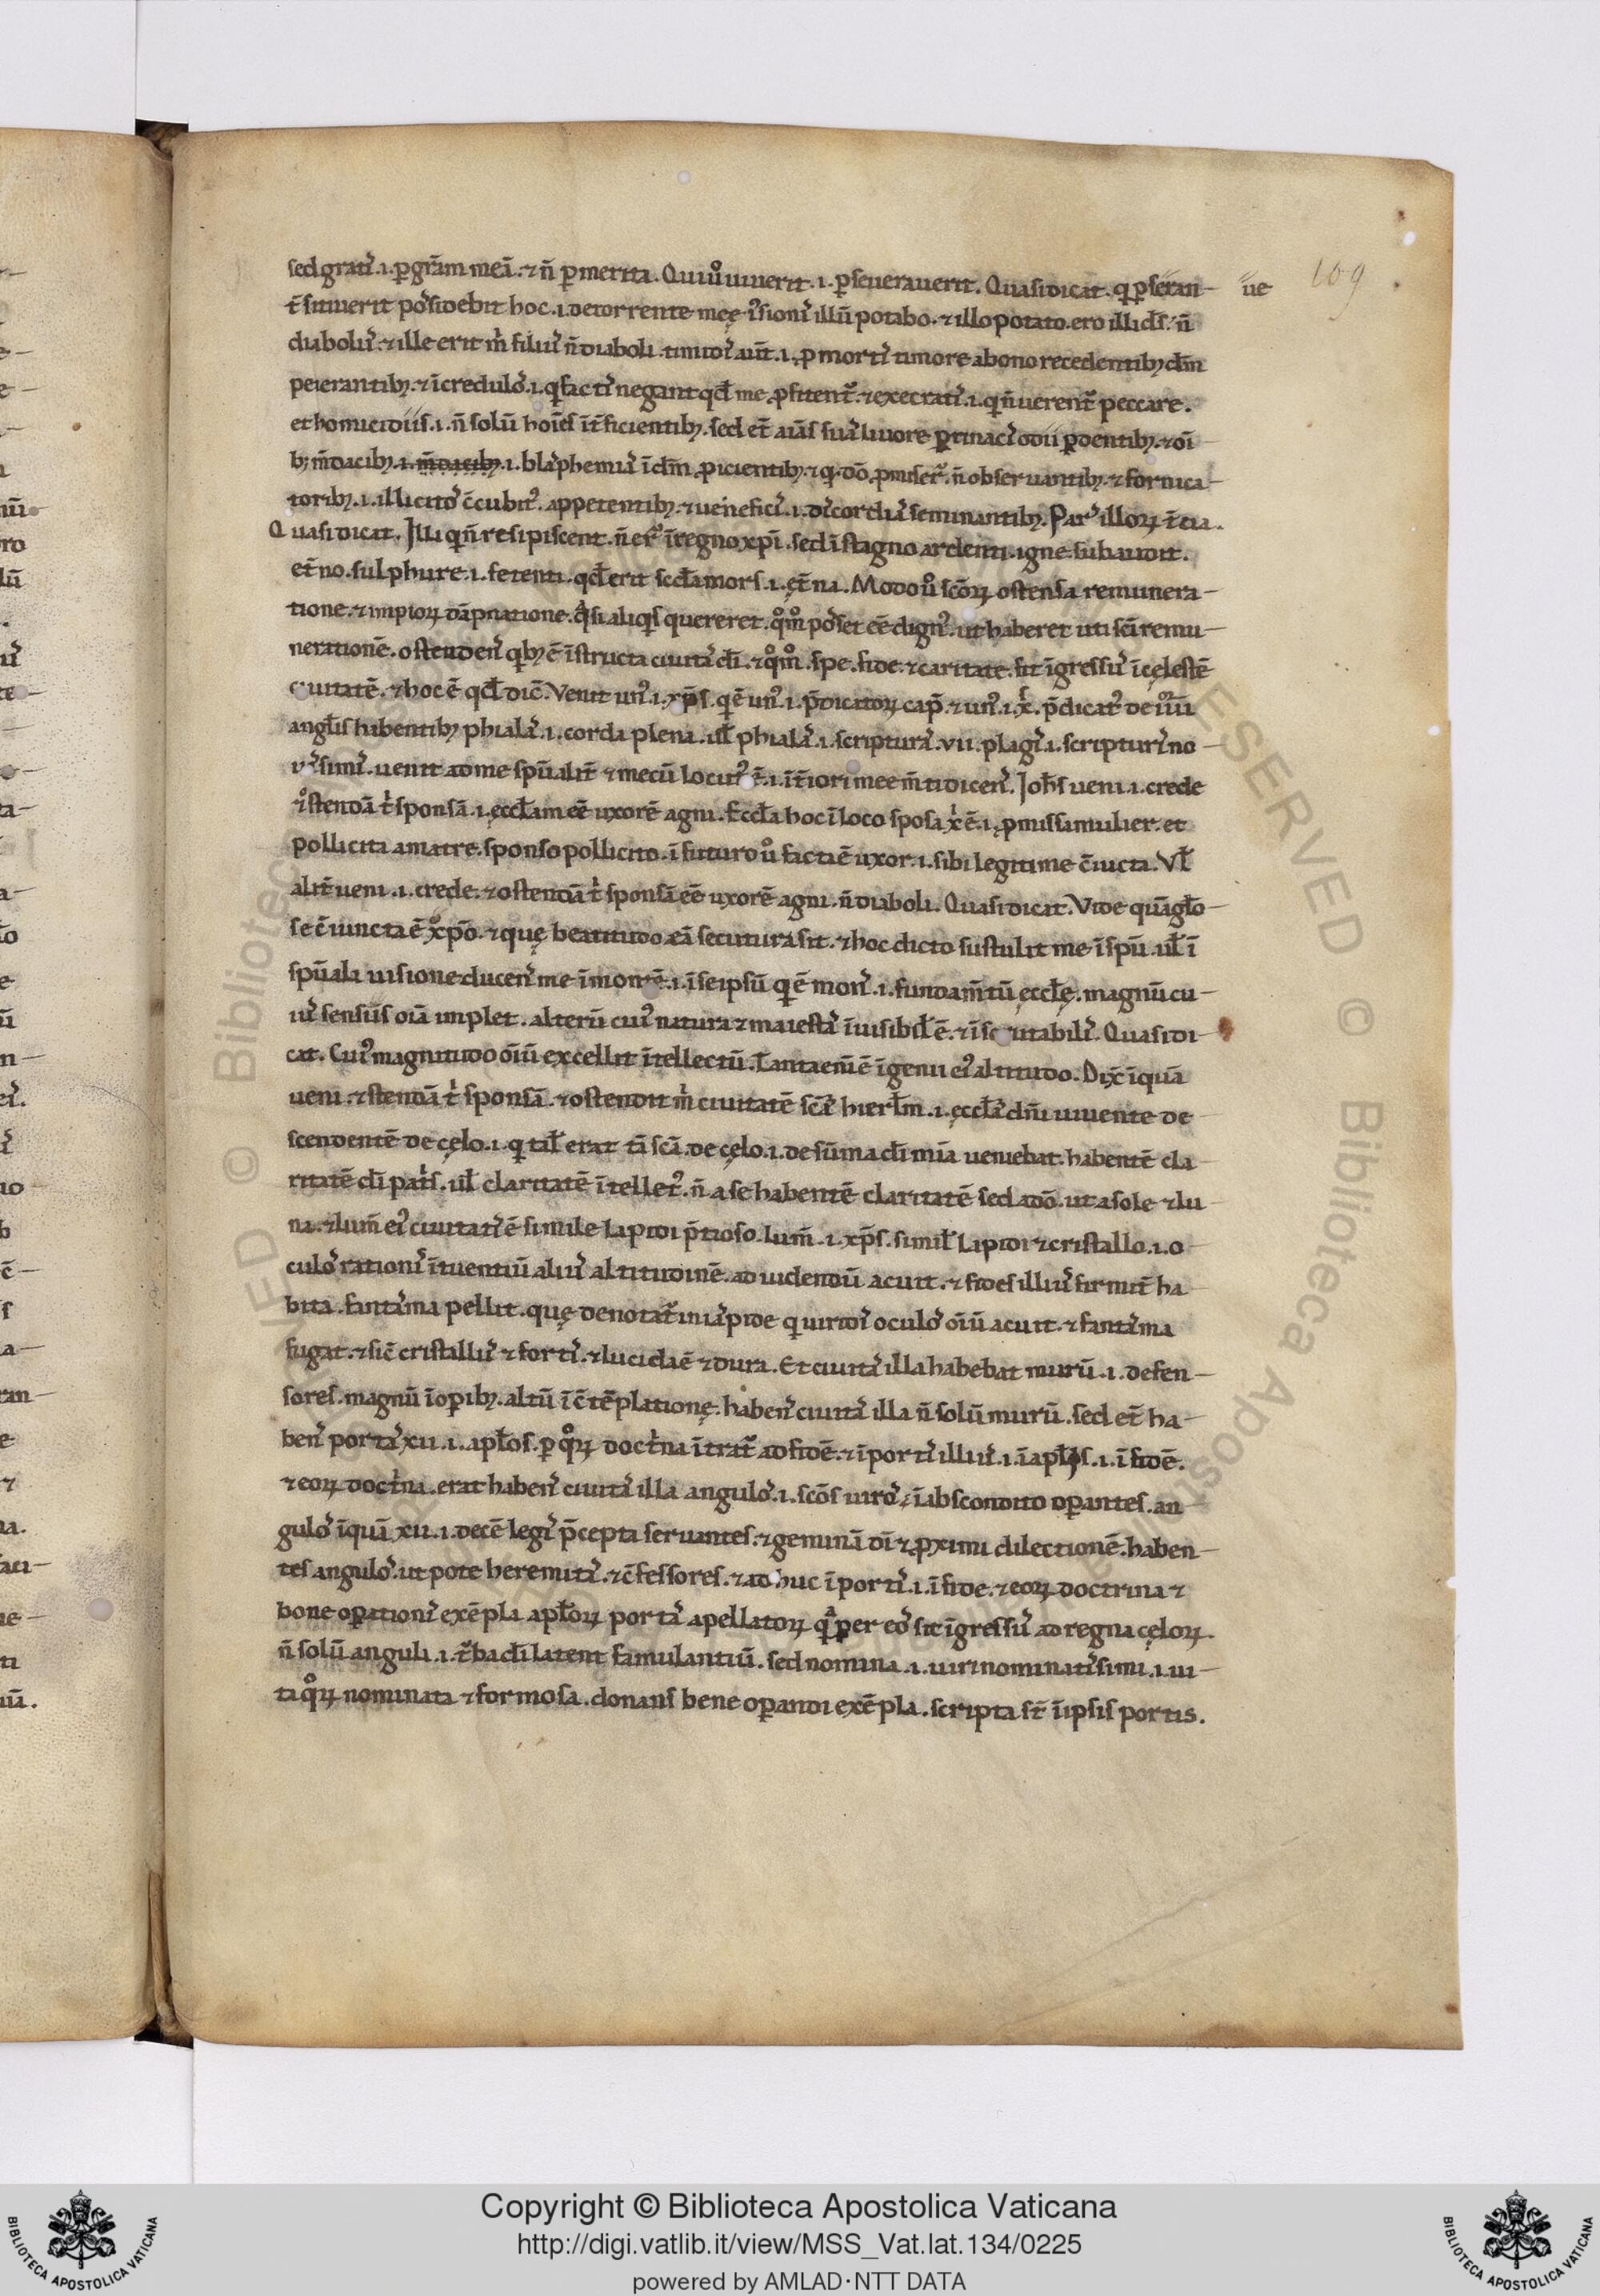 sed gratis .i. p grãm meã. ⁊ ñ p merita. Qui uͦ uiuerit .i. pseuerauerit. Quasi dicat. q pseran- ue 109
t̃ siuuerit possidebit hoc .i. de torrente meę uisionis illũ potabo. ⁊ illo potato. ero illi ds̃. ñ
diabolus. ⁊ ille erit m̃ filius ñ diaboli. timidis aut̃ .i. p mortis timore a bono recedentibȝ dm̃
peierantibȝ. ⁊ ĩcredulos .i. q factis negant qd̃ me pfitent̃. ⁊ execratis .i. q ñ uerent̃ peccare.
et homicidiis .i. ñ solũ hoĩes ĩt̃ficientibȝ. sed et̃ aĩas suas liuore ptinacis odii pdentibȝ. ⁊ oĩ
bȝ m̃dacibȝ .i. m̃dacibȝ .i. blasphemias ĩ dm̃ picientibȝ. ⁊ q dõ pmiser̃. ñ obseruantibȝ. ⁊ fornica-
toribȝ .i. illicitos c̃cubit᾽ appetentibȝ. ⁊ ueneficis .i. discordias seminantibȝ. Pars illoꝝ t̃cia.
Quasi dicat. Illi q ñ resipiscent. ñ er̃ ĩ regno xp̃i. sed ĩ stagno ardenti. igne subaudit.
et̃no. sulphure .i. fetenti. qd̃ erit scd̃a mors .i. ęt̃na. Modo uͦ scõꝝ ostensa remunera-
tione. ⁊ impioꝝ dãpnatione. q̃si aliqis quereret. qͦmͦ posset eẽ dign᾽ ut haberet uti scĩ remu-
nerationẽ. ostendens qbȝ ẽ ĩstructa ciuitas di. ⁊ qͦmͦ. spe. fide. ⁊ caritate. fit ĩgressus ĩ cęlestẽ
ciuitatẽ. ⁊ hoc ẽ qd̃ dic̃. Venit un᾽ .i. xp̃s. q ẽ un᾽ .i. p̃dicatoꝝ cap̃. ⁊ un᾽ .i. x̃. p̃dicat᾽ de
angl̃is habentibȝ phialas .i. corda plena. ul̃ phialas .i. scripturas. vii. plagis .i. scripturis no-
uissimis. uenit ad me spũalit̃ ⁊ mecũ locut᾽ t̃ .i. ĩt̃iori mee m̃ti dicens. Ioh̃s ueni .i. crede
⁊ ostendã t̃ sponsã .i. ęccl̃am eẽ uxorẽ agni. Eccl̃a hoc ĩ loco sposa x̃ ẽ .i. pmissa mulier. et
pollicita a matre. sponso pollicito. ĩ futuro uͦ facta ẽ uxor .i. sibi legitime c̃iucta. Vl̃
alit̃ ueni .i. crede. ⁊ ostendã t̃ sponsã eẽ uxorẽ agni. ñ diaboli. Quasi dicat. Vide quã gl̃o-
se c̃iuncta ẽ xp̃o. ⁊ quę beatitudo eã secutura sit. ⁊ hoc dicto sustulit me ĩ spũ. ul̃ ĩ
spũali uisione ducens me ĩ montẽ .i. ĩ seipsũ q ẽ mons .i. fundam̃tũ ęccl̃ę. magnũ cu-
ius sensus oĩa implet. alterũ cui᾽ natura ⁊ maiestas ĩuisibil̃ ẽ. ⁊ ĩscrutabilis. Quasi di-
cat. Cui᾽ magnitudo oĩũ excellit ĩtellectũ. Tanta enĩ ẽ ĩgenii ei᾽ altitudo. Dix̃ ĩquã
ueni. ⁊ ostendã t̃ sponsã. ⁊ ostendit m̃ ciuitatẽ scãs hierl̃m .i. ęccl̃as dm̃ uiuente de
scendentẽ de cęlo .i. q tal̃ erat tã scã. de cęlo .i. de sũma di mĩa ueniebat. habentẽ cla
ritatẽ di patis. ul̃ claritatẽ ĩtellet᾽. ñ a se habentẽ claritatẽ sed a dõ. ut a sole ⁊ lu
na. ⁊ lum̃ ei᾽ ciuitatis ẽ simile lapidi p̃tioso. lum̃ .i. xp̃s. simil̃ lapidi ⁊ cristallo .i. o
culos rationis ĩtuentiũ alius altitudinẽ. ad uidendũ acuit. ⁊ fides illius firmit̃ ha
bita. fantasma pellit. quę denotat̃ in iaspide q uiridis oculos oĩũ acuit. ⁊ fantasma
fugat. ⁊ sic̃ cristallus ⁊ fortis. ⁊ lucida ẽ ⁊ dura. Et ciuitas illa habebat murũ .i. defen-
sores. magnũ ĩ opibȝ. altũ ĩ c̃tẽplatione. habens ciuitas illa ñ solũ murũ. sed et̃ ha-
bens portas xii .i. apl̃os. p qͦꝝ doctna ĩtrat̃ ad fidẽ. ⁊ ĩ portis illius .i. ĩ apl̃is .i. ĩ fidẽ.
⁊ eoꝝ doctna. erat habens ciuitas illa angulos .i. scõs uiros ĩ abscondito opantes. an
gulos ĩquã xii .i. decẽ legis p̃cepta seruantes. ⁊ geminã di ⁊ pximi dilectionẽ. haben-
tes angulos. ut pote heremitas. ⁊ c̃fessores. ⁊ ad huc ĩ portis .i. ĩ fide. ⁊ eoꝝ doctrina ⁊
bone opationis exẽpla apl̃oꝝ portas apellatoꝝ qͣ per eos fit ĩgressus ad regna cęloꝝ.
ñ solũ anguli .i. t̃ba di latent famulantiũ. sed nomina .i. uiri nominatissimi .i. ui-
ta qͦꝝ nominata ⁊ formosa. donans bene opandi exẽpla. scripta st̃ ĩ ipsis portis.
Copyright © Biblioteca Apostolica Vaticana
http://digi.vatlib.it/view/MSS_Vat.lat.134/0225
powered by AMLAD·NTT DATA